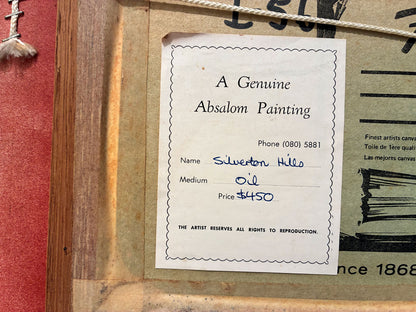 A Genuine
Absalom Painting
Phone (080) 5881
Name Silverton Hills
Medium Oil
Price $450
THE ARTIST RESERVES ALL RIGHTS TO REPRODUCTION.
Finest artists canva
Toile de 1ère qualit
Las mejores canvas
nce 1868